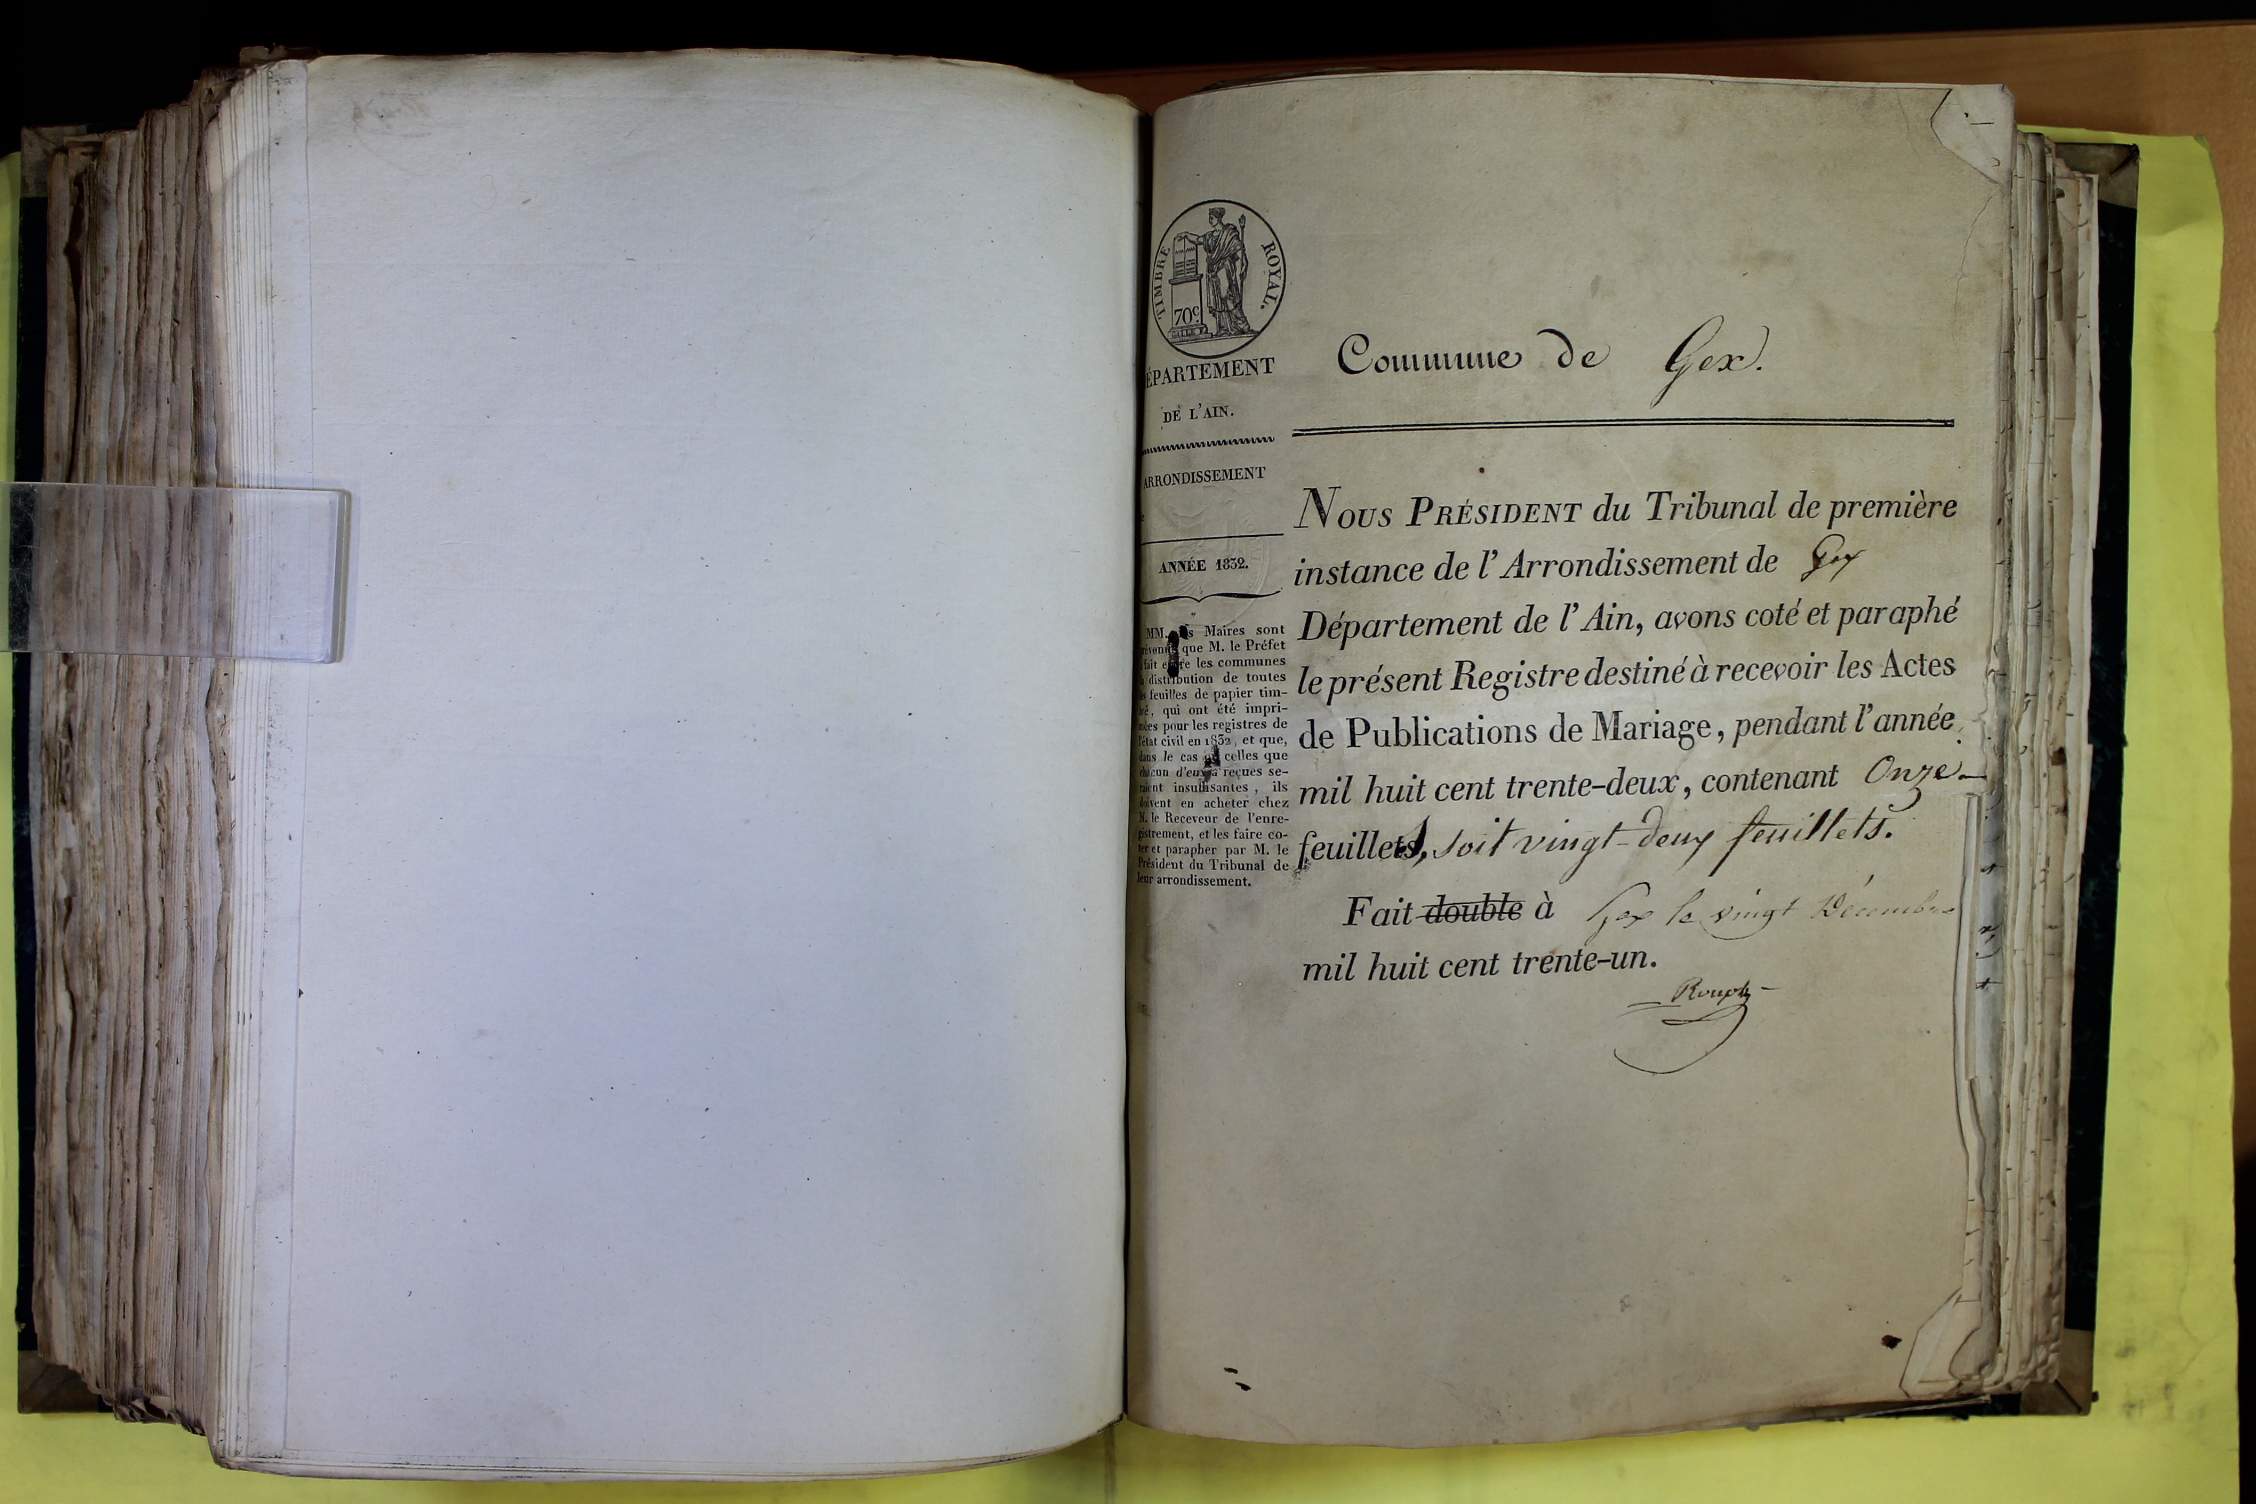 TIMBRE ROYAL.
70c
ÉPARTEMENT
DE L'AIN.
ARRONDISSEMENT
ANNÉE 1832.
MM. Maires sont
que M. le Préfet
fait les communes
distribution de toutes
feuilles de papier tim-
bré, qui ont été impri-
mées pour les registres de
l'état civil en 1832, et que,
dans le cas où celles que
chacun d'eux a reçues se-
raient insuffisantes, ils
doivent en acheter chez
M. le Receveur de l'enre-
gistrement, et les faire co-
ter et parapher par M. le
Président du Tribunal de
leur arrondissement.
Commune de Gex.
NOUS PRÉSIDENT du Tribunal de première
instance de l'Arrondissement de Gex
Département de l'Ain, avons coté et paraphé
le présent Registre destiné à recevoir les Actes
de Publications de Mariage, pendant l'année
mil huit cent trente-deux, contenant Onze
feuillets, soit vingt-deux feuillets.
Fait double à Gex le vingt Décembre
mil huit cent trente-un.